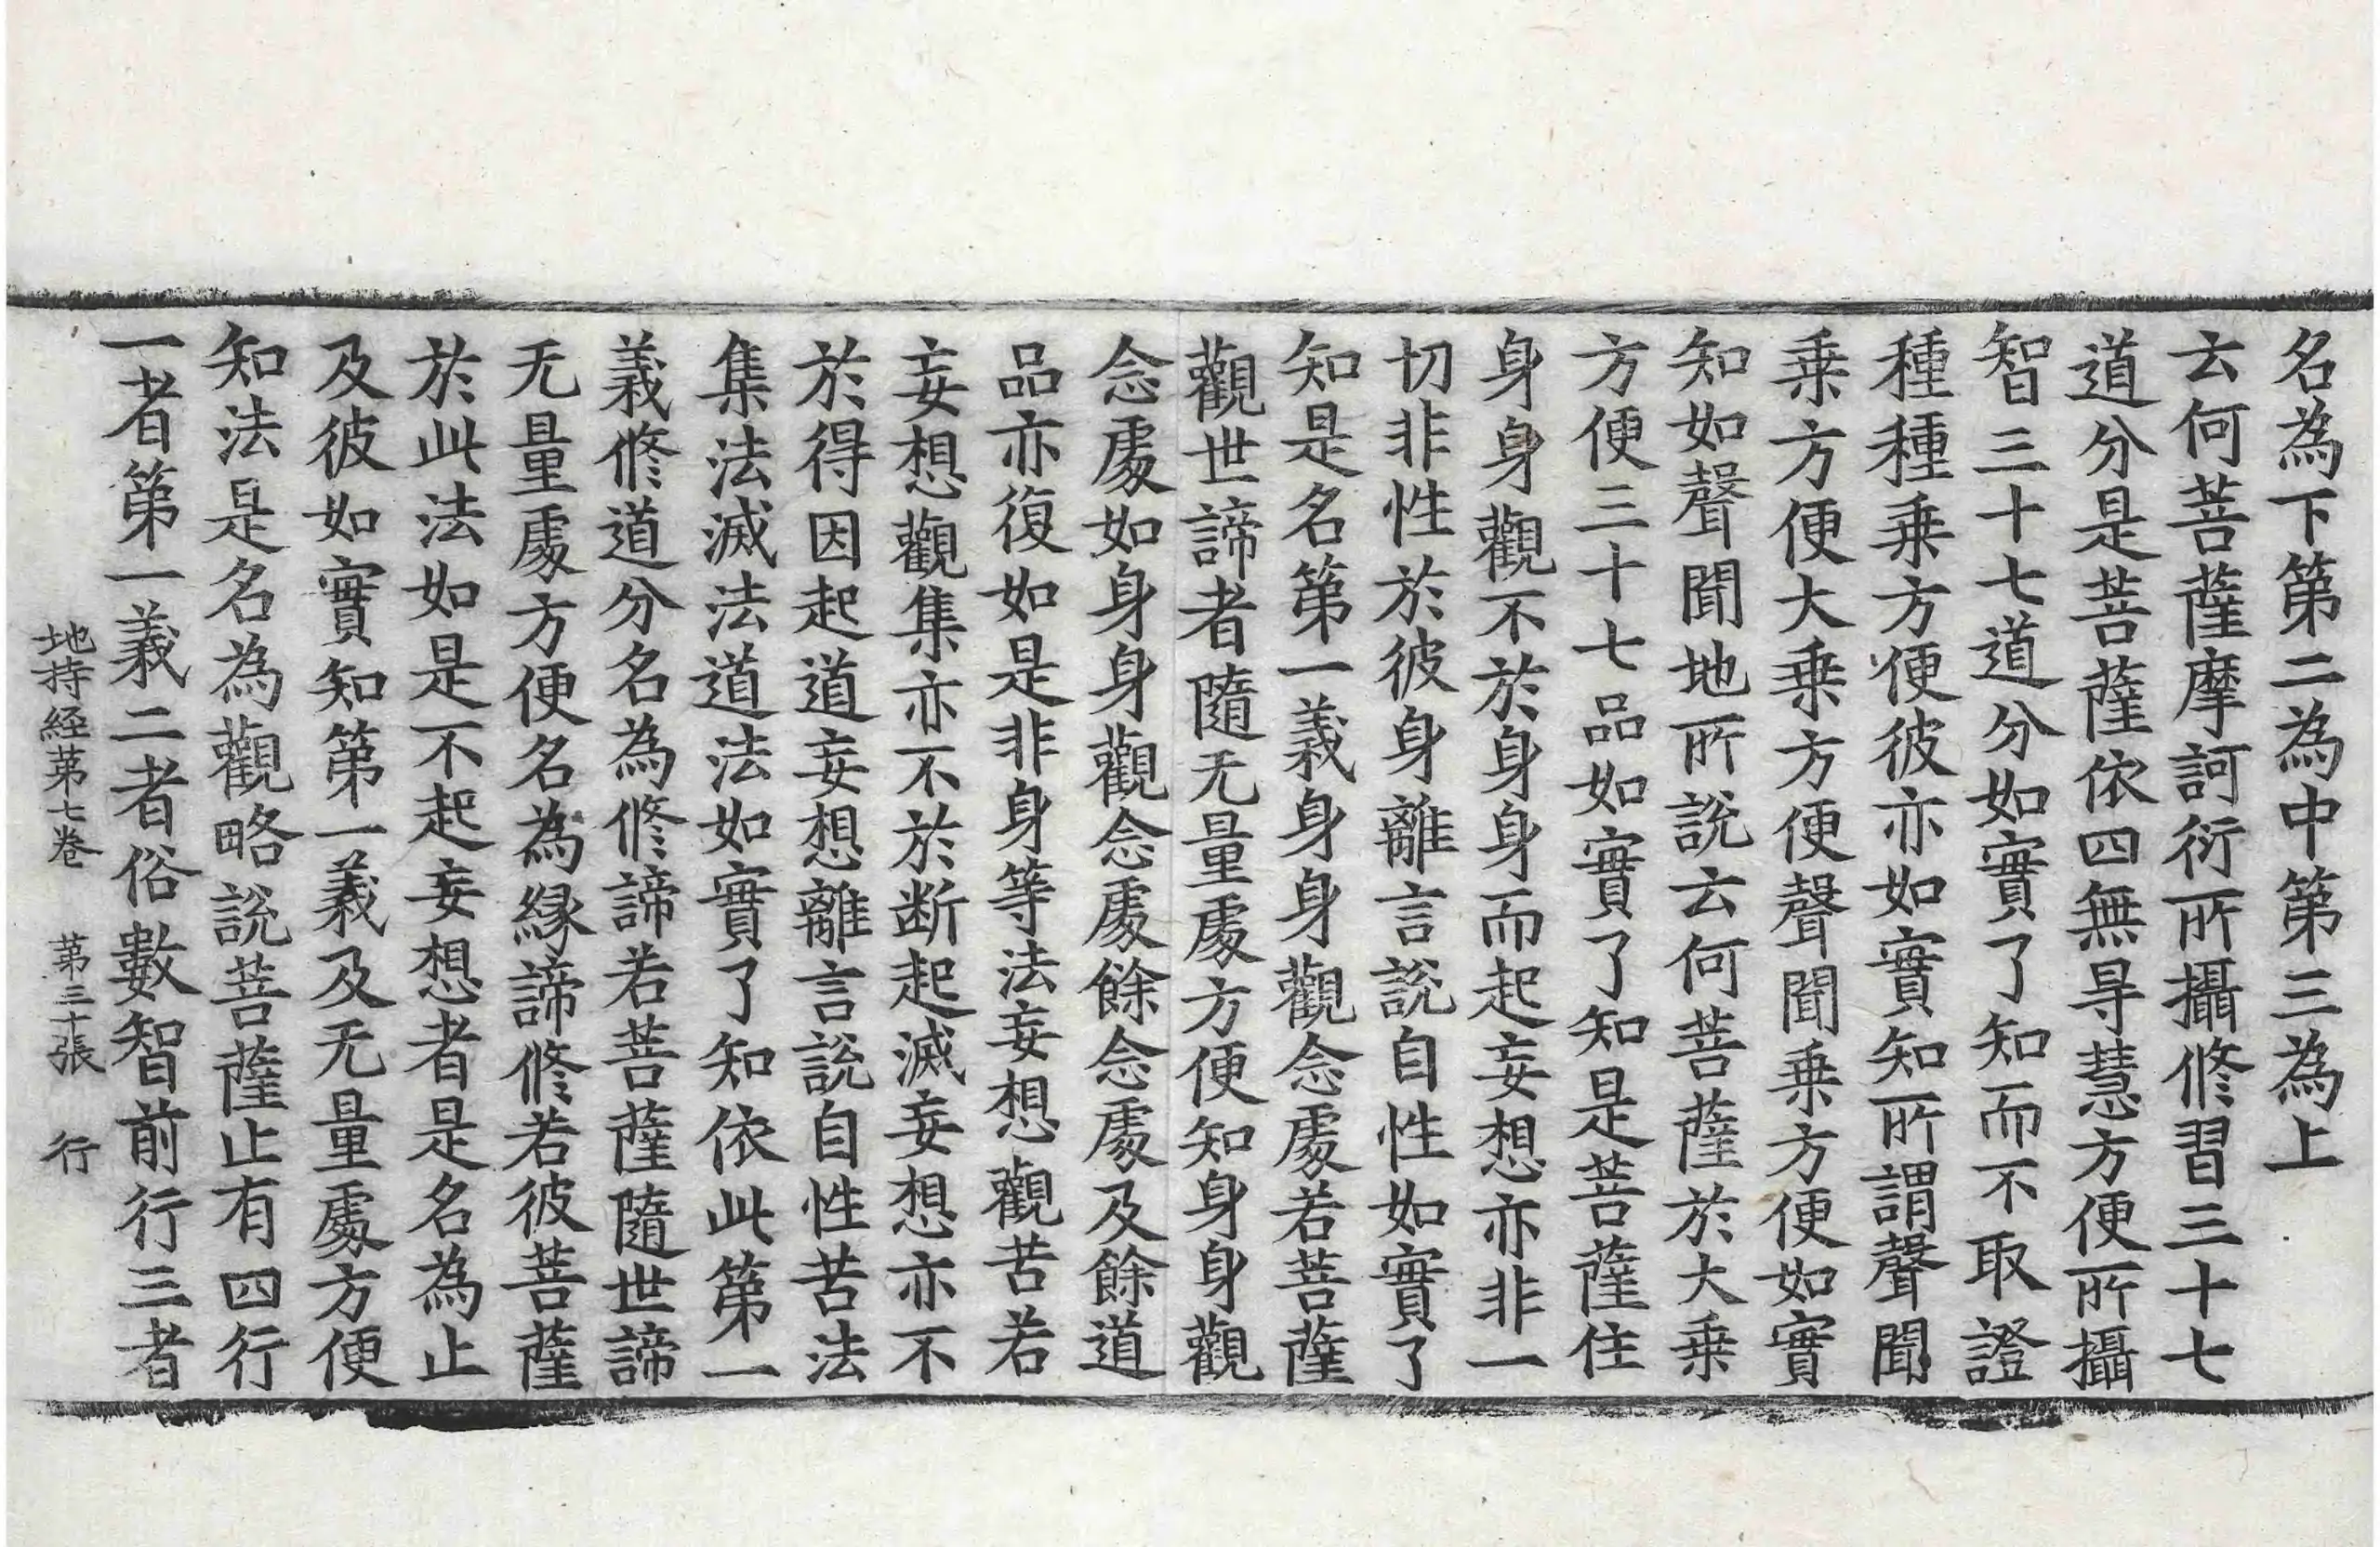 名為下第二為中第三為上
云何菩薩摩訶衍所攝修習三十七
道分是菩薩依四無㝵慧方便所攝
智三十七道分如實了知而不取證
種種乗方便彼亦如實知所謂聲聞
乗方便大乗方便聲聞乗方便如實
知如聲聞地所說云何菩薩於大乗
方便三十七品如實了知是菩薩住
身身觀不於身身而起妄想亦非一
切非性於彼身離言說自性如實了
知是名第一義身身觀念處若菩薩
觀世諦者隨无量處方便知身身觀
念處如身身觀念處餘念處及餘道
品亦復如是非身等法妄想觀苦若
妄想觀集亦不於断起滅妄想亦不
於得因起道妄想離言說自性苦法
集法滅法道法如實了知依此第一
義修道分名為修諦若菩薩隨世諦
无量處方便名為緣諦修若彼菩薩
於此法如是不起妄想者是名為止
及彼如實知第一義及无量處方便
知法是名為觀略說菩薩止有四行
一者第一義二者俗數智前行三者
地持経苐七卷 苐三十張 行